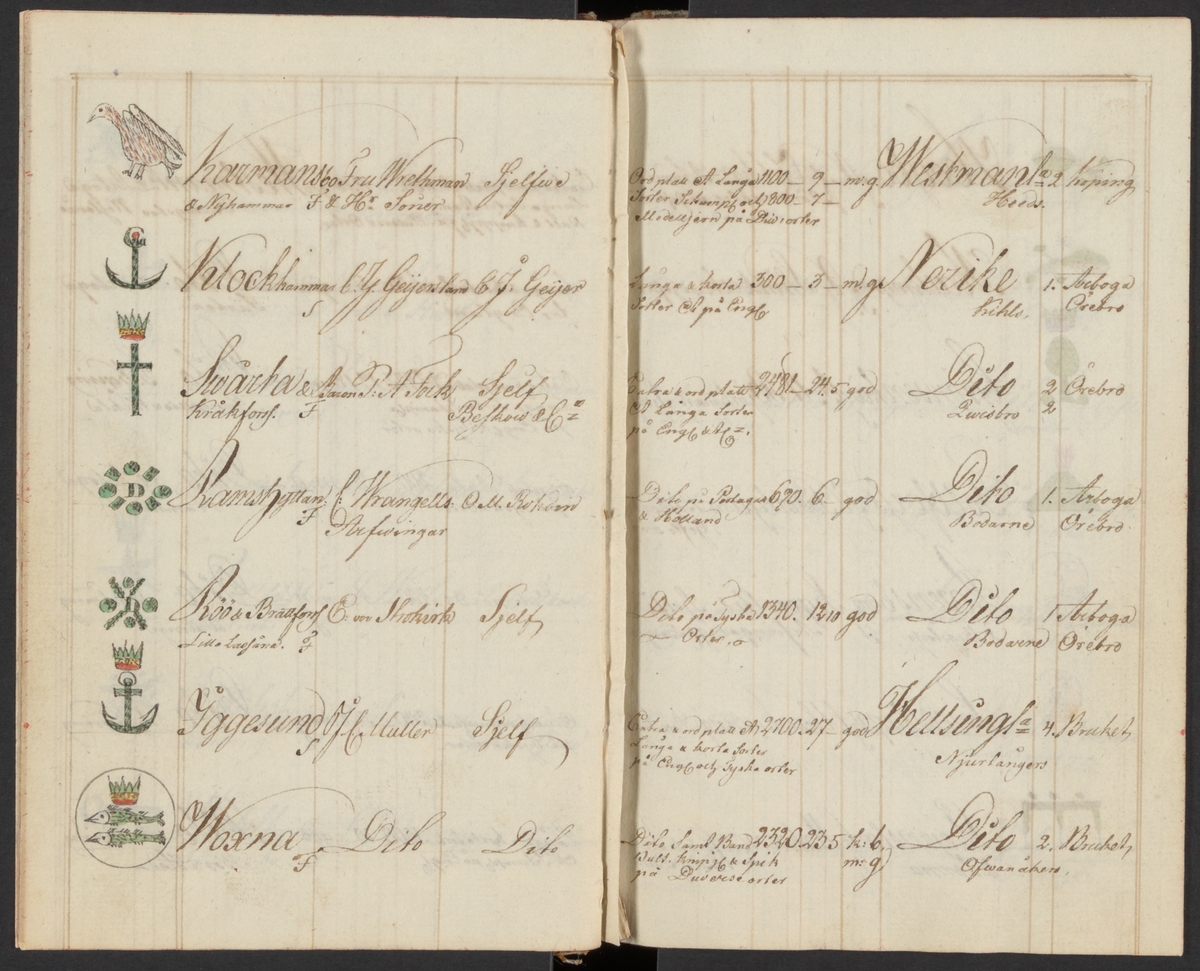 Karmansbo Fru Wrethman Sjelfwe
& Nyhammar F & Hr Söner
Klockhammar C. G. Geijerstam C. J. Geijer
S
Swärta & Baron P: A Fock Sjelf
Kråkfors. F Beskow & C
D
Ramshyttan C: Wrangells O. M.
F Arfwingar
D
Röö & Brattfors E: von Sjelf
Lilla F
Iggesund Muller Sjelf
S
Woxna Dito Dito
F
Ord platt & Långa 1100 — 9 — m. g. Westmanla 2 Köping
Sorter och 800 — 7 — Heeds.
Modelljern på Div: orter
Långa & korta 300 — 3 — m: g. Nerike 1. Arboga
Sorter på Engl. Kihls. Örebro
Extra & ord platt 2481 — 24. 5 god Dito 2 Örebro
Långa Sorter Qwisbro 2
på Engl
Dito på Portugal 690. 6 — god Dito 1. Arboga
& Holland Bodarne Örebro
Dito på Tyska 1340. 12 10 god Dito 1 Arboga
Orter. Bodarne Örebro
Extra & ord platt 2700. 27 — god Helsingla 4. Bruket,
Långa & korta Sorter Njurlångers
på Engl och Tyska orter
Dito Samt Band 2320. 23 5 k: b, Dito 2. Bruket,
Bult. Knip & Spik m: g) Ofwanåkers.
på Diverse orter